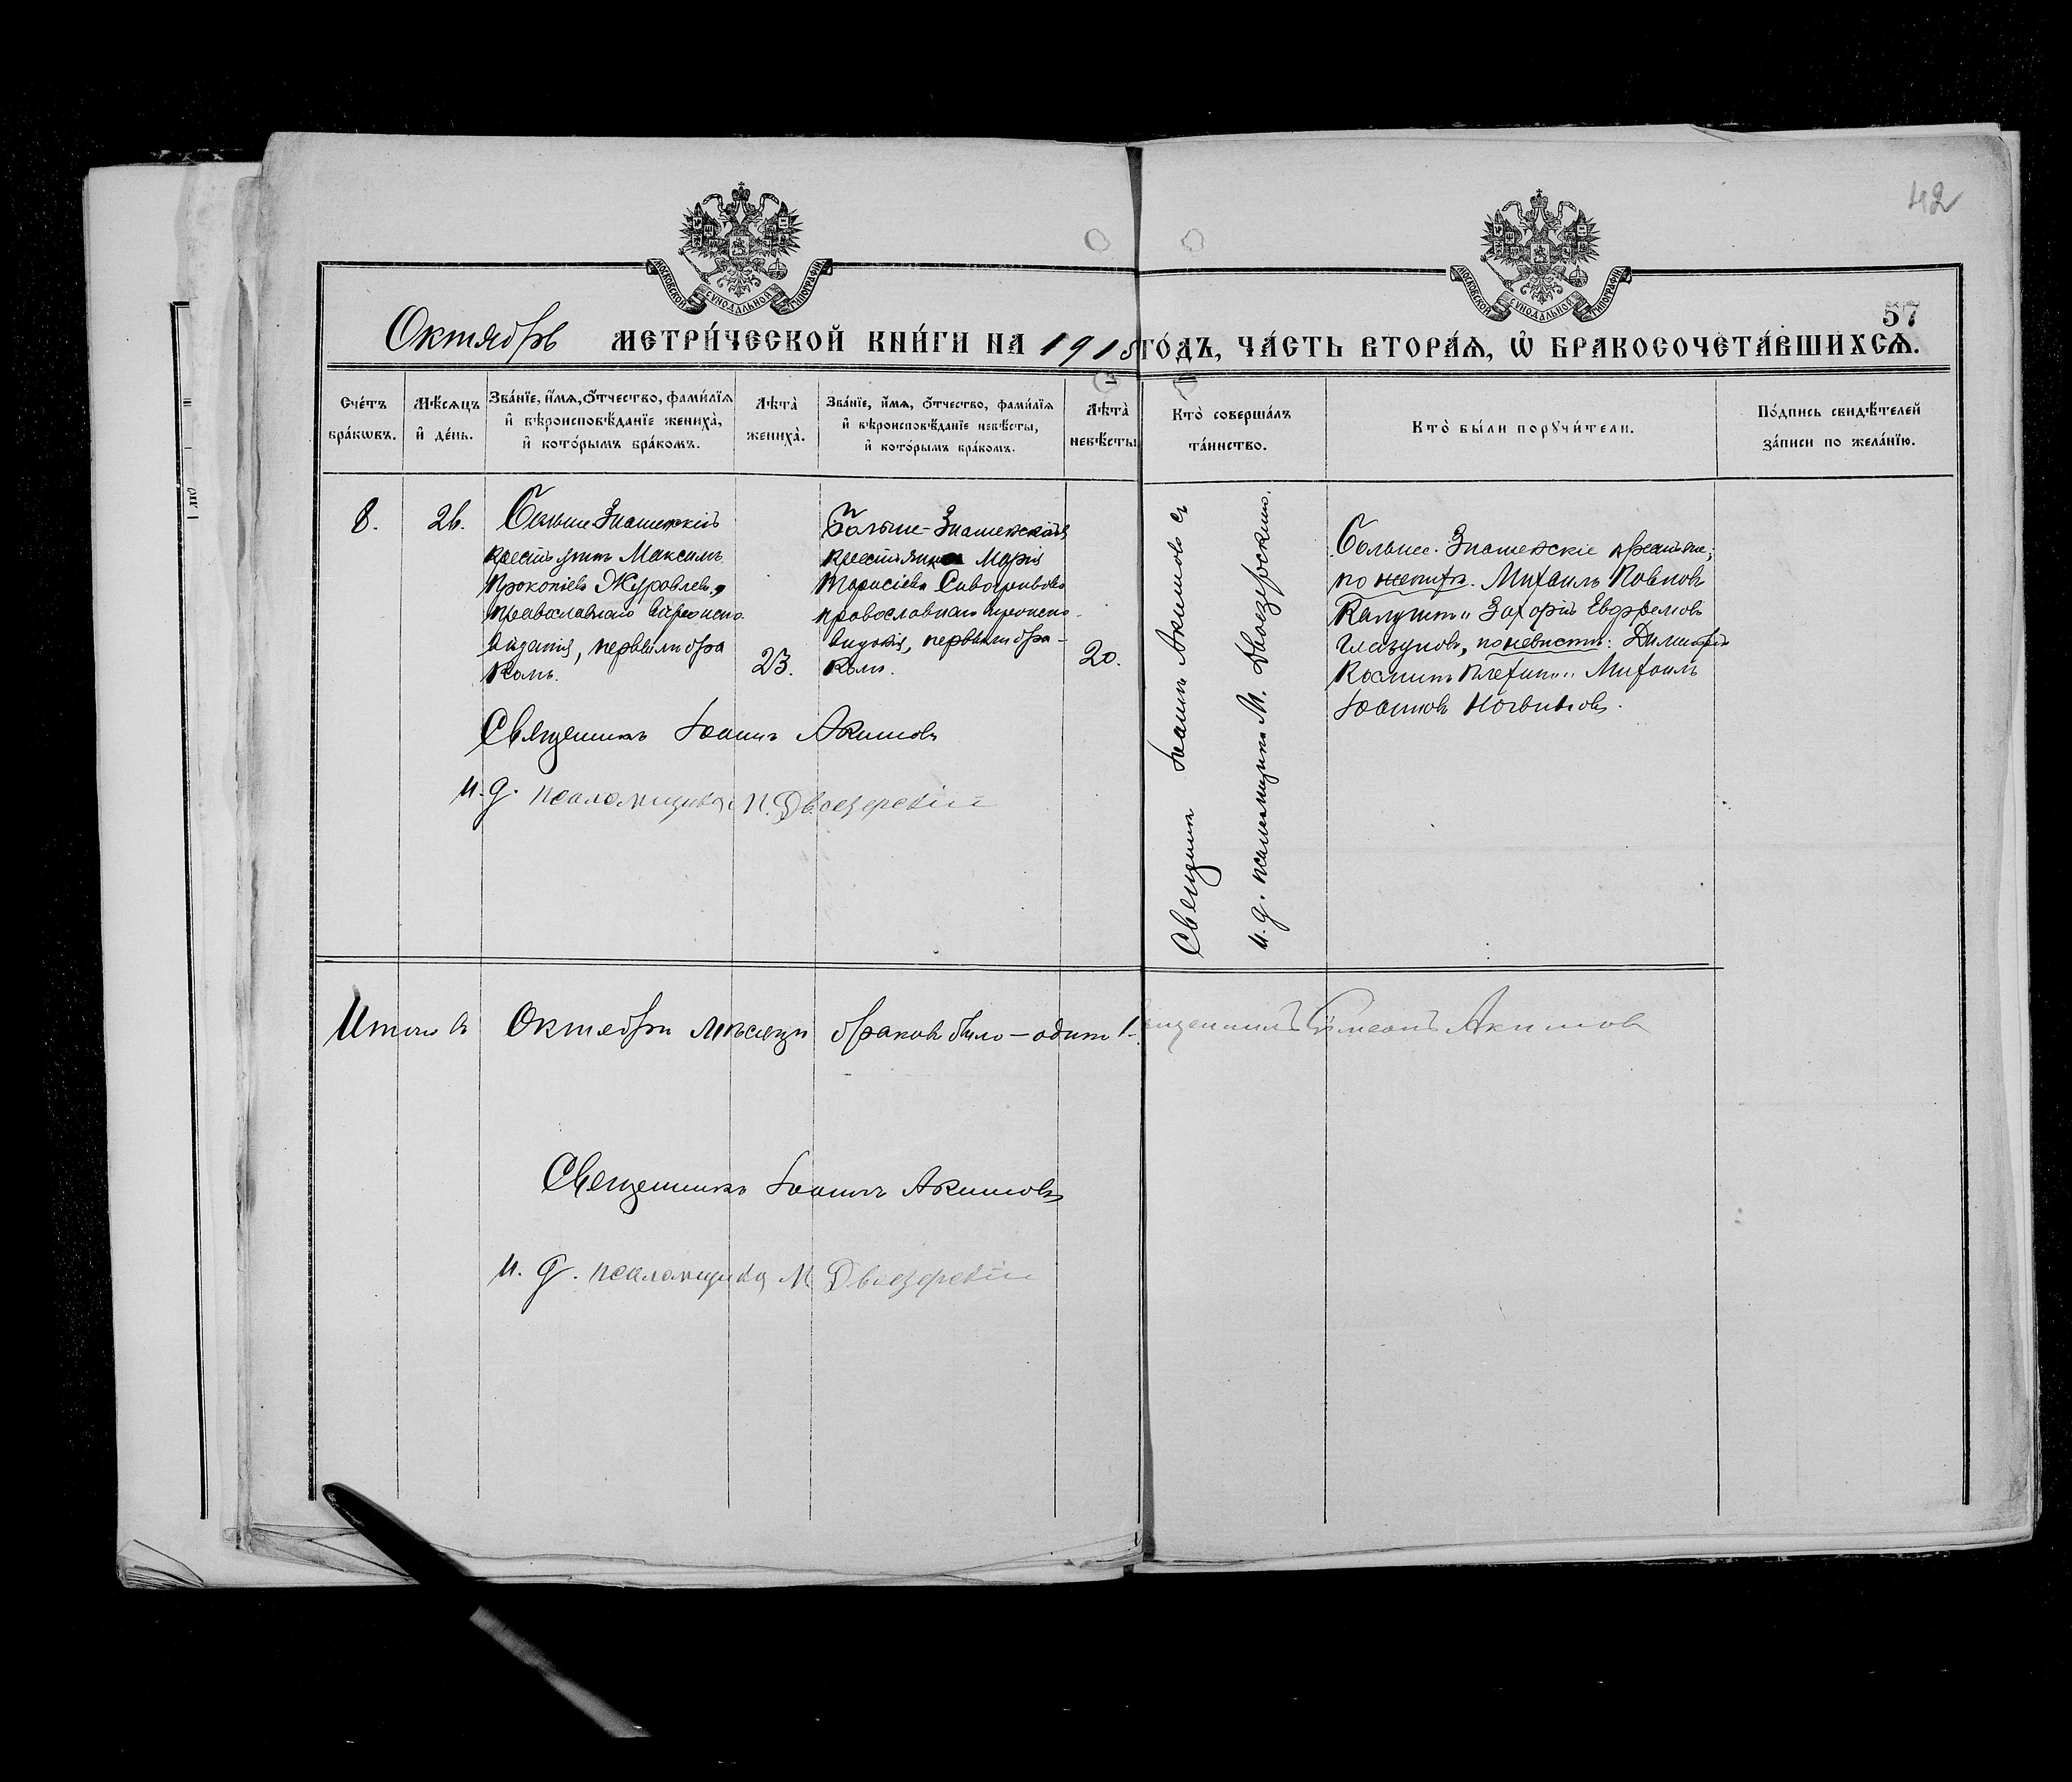 42
МОСКОВСКОЙ СУНОДАЛЬНОЙ ТИПОГРАФІИ
МОСКОВСКОЙ СУНОДАЛЬНОЙ ТИПОГРАФІИ
57
Октябрь МЕТРИ́ЧЕСКОЙ КНИ́ГИ НА 1915 ГО́ДЪ, ЧА́СТЬ ВТОРА́Ѧ, Ѡ҆ БРАКОСОЧЕТА́ВШИХСѦ.
Сче́тъ бра́кѡвъ.
Мѣ́сѧцъ и҆ де́нь.
Зва́нїе, и҆́мѧ, ѻ҆́тчество, фами́лїѧ и҆ вѣроисповѣ́данїе жениха̀, и҆ кото́рымъ бра́комъ.
Лѣта̀ жениха̀.
Зва́нїе, и҆́мѧ, ѻ҆́тчество, фами́лїѧ и҆ вѣроисповѣ́данїе невѣ́сты, и҆ кото́рымъ бра́комъ.
Лѣта̀ невѣ́сты
Кто̀ соверша́лъ та́инство.
Кто̀ бы́ли порꙋчи́тели.
По́дпись свидѣ́телей за́писи по жела́нїю.
8.
26.
Больше Знаменскій
крестьянинъ Максимъ
Прокопіевъ Журавлевъ,
православнаго вѣроиспо
вѣданія, первымъ бра
комъ.
23.
Больше-Знаменская
крестьянка Марія
Тарасіева Сивогривова
православнаго вѣроиспо
вѣданія, первымъ бра-
комъ.
20.
Священникъ Іоаннъ Акимовъ съ
и. д. псаломщика М. Двоезерскимъ.
Больше-Знаменскіе крестьяне;
по женихѣ. Михаилъ Павловъ
Захарій Евфремовъ
Глазуновъ, по невѣстѣ: Димитрій
Косминъ Плехинъ и Михаилъ
Іоанновъ Логвиновъ.
Священникъ Іоаннъ Акимовъ
и. д. псаломщика М. Двоезерскій
Итого въ Октябрѣ мѣсяцѣ браковъ было – одинъ 1.
Священникъ Симеонъ Акимов
Священникъ Іоаннъ Акимовъ
и. д. псаломщика М Двоезерскій